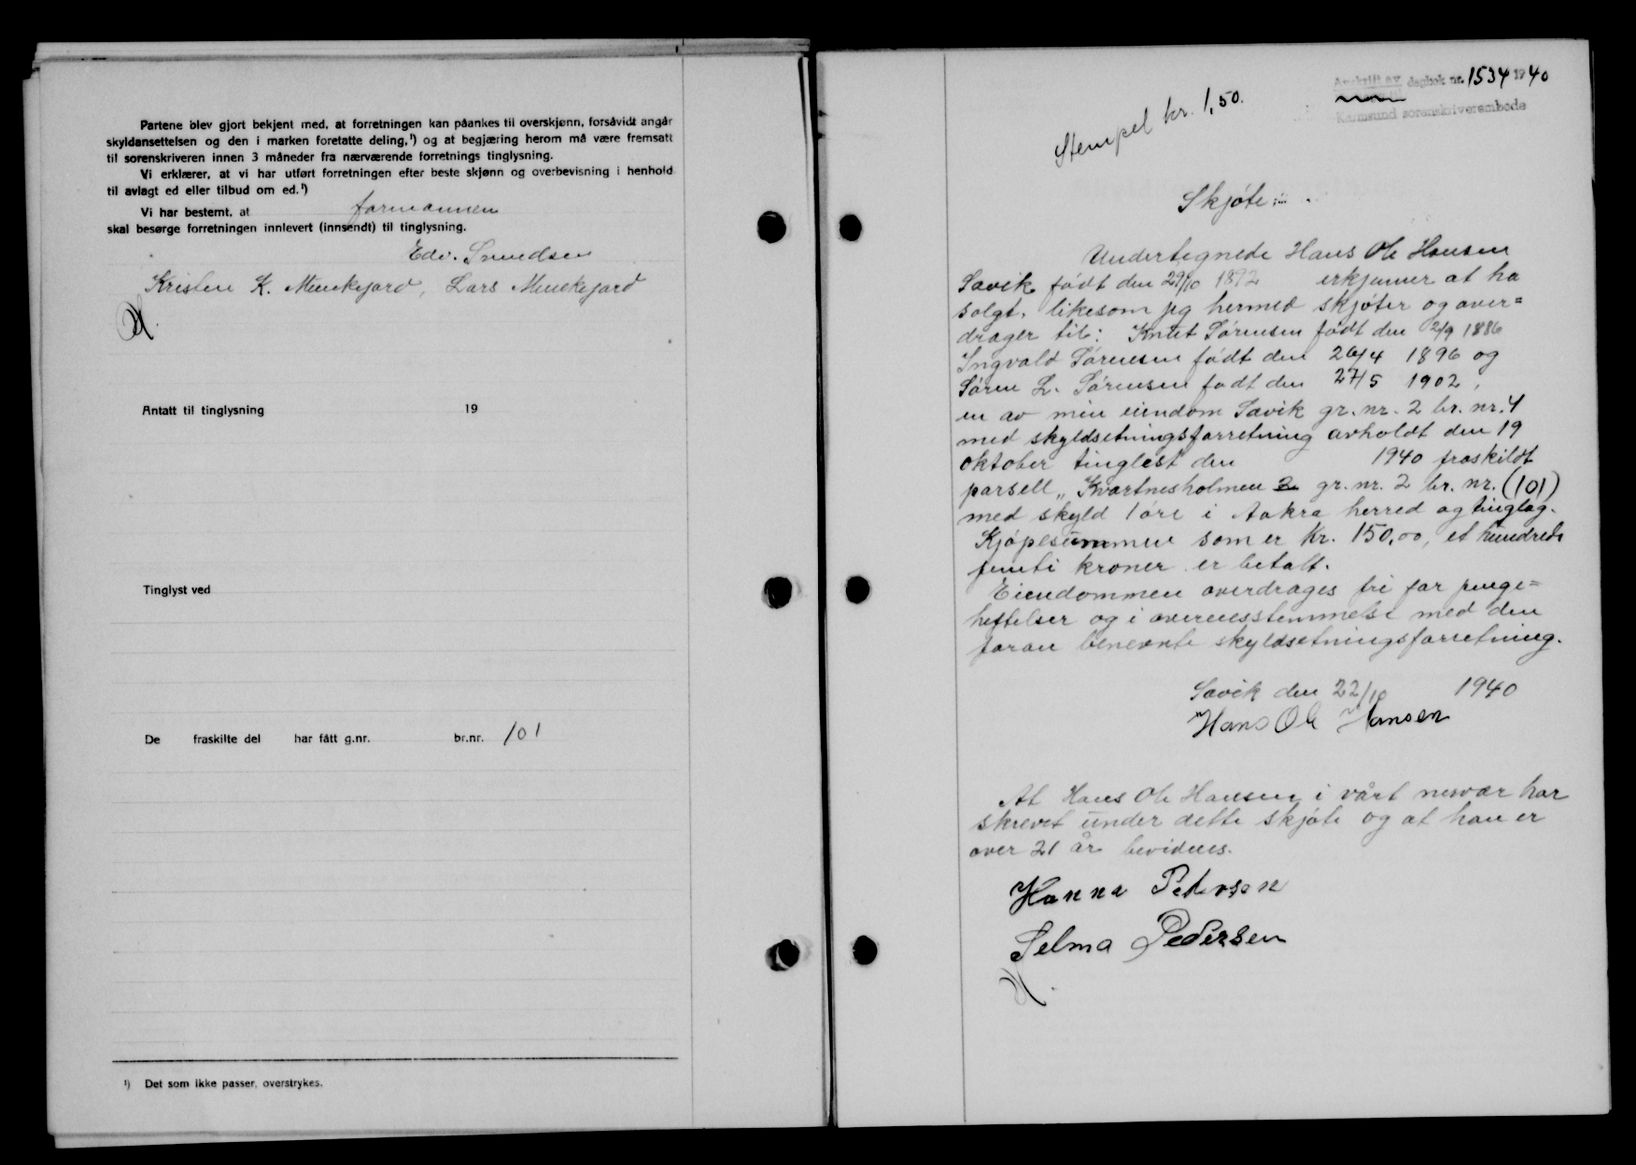 Partene blev gjort bekjent med, at forretningen kan påankes til overskjønn, forsåvidt angår
skyldansettelsen og den i marken foretatte deling,¹) og at begjæring herom må være fremsatt
til sorenskriveren innen 3 måneder fra nærværende forretnings tinglysning.
Vi erklærer, at vi har utført forretningen efter beste skjønn og overbevisning i henhold
til avlagt ed eller tilbud om ed.¹)
Vi har bestemt, at formannen
skal besørge forretningen innlevert (innsendt) til tinglysning.
Edv.
Kristen K. Munkejord, Lars Munkejord
Antatt til tinglysning 19
Tinglyst ved
De fraskilte del har fått g.nr. br.nr. 101
¹) Det som ikke passer, overstrykes.
Avskrift av dagbok nr. 1534 1940
Karmsund sorenskriverembede
Stempel kr. 1,50.
Skjøte:
Undertegnede Hans Ole Hansen
Sævik født den 29/10 1892 erkjenner at ha
solgt, likesom jeg hermed skjøter og over=
drager til: Knut Sørensen født den 2/9 1886
Ingvald Sørensen født den 26/4 1896 og
Søren L. Sørensen født den 27/5 1902,
en av min eiendom Sævik gr. nr. 2 br. nr. 4
med skyldsetningsforretning avholdt den 19
oktober tinglest den 1940 fraskildt
parsell „Kvartnesholmen 2 gr. nr. 2 br. nr. (101)
med skyld 1 øre i Aakra herred og tinglag.
Kjøpesummen som er kr. 150,00, et hundrede
femti kroner er betalt.
Eiendommen overdrages fri for penge=
heftelser og i overensstemmelse med den
foran benevnte skyldsetningsforretning.
Sævik den 22/10 1940
Hans Ole Hansen
At Hans Ole Hansen i vårt nærvær har
skrevet under dette skjøte og at han er
over 21 år bevidnes.
Hanna Pedersen
Selma Pedersen